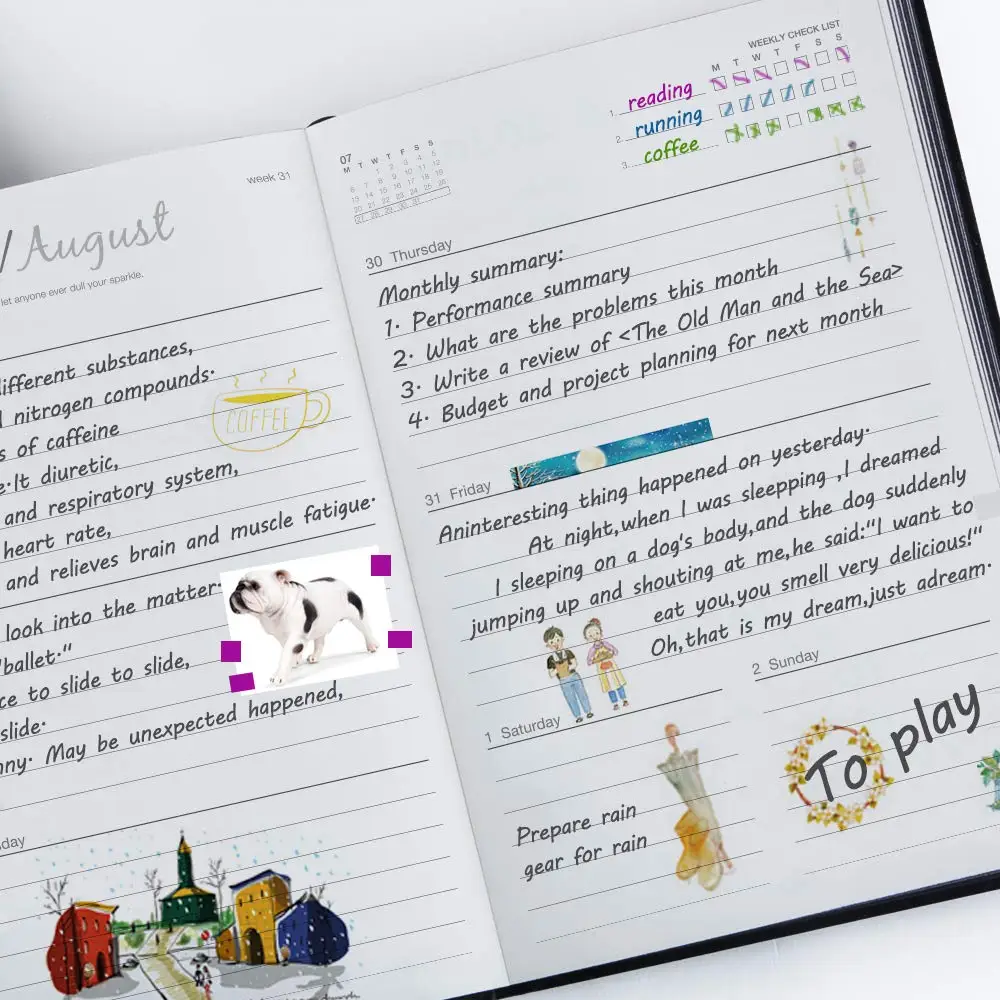 week 31
/August
let anyone ever dull your sparkle.
different substances,
nitrogen compounds.
s of caffeine
e.It diuretic,
and respiratory system,
heart rate,
and relieves brain and muscle fatigue.
COFFEE
look into the matter.
"ballet."
ce to slide to slide,
slide.
nny. May be unexpected happened,
sday
07
M T W T F S S
1 2 3 4 5
6 7 8 9 10 11 12
13 14 15 16 17 18 19
20 21 22 23 24 25 26
27 28 29 30 31
WEEKLY CHECK LIST
M T W T F S S
1. reading
2. running
3. coffee
30 Thursday
Monthly summary:
1. Performance summary
2. What are the problems this month
3. Write a review of <The Old Man and the Sea>
4. Budget and project planning for next month
31 Friday
Aninteresting thing happened on yesterday.
At night,when I was sleepping ,I dreamed
I sleeping on a dog's body,and the dog suddenly
jumping up and shouting at me,he said:"I want to
eat you,you smell very delicious!"
Oh,that is my dream,just adream.
1 Saturday
Prepare rain
gear for rain
2 Sunday
To play